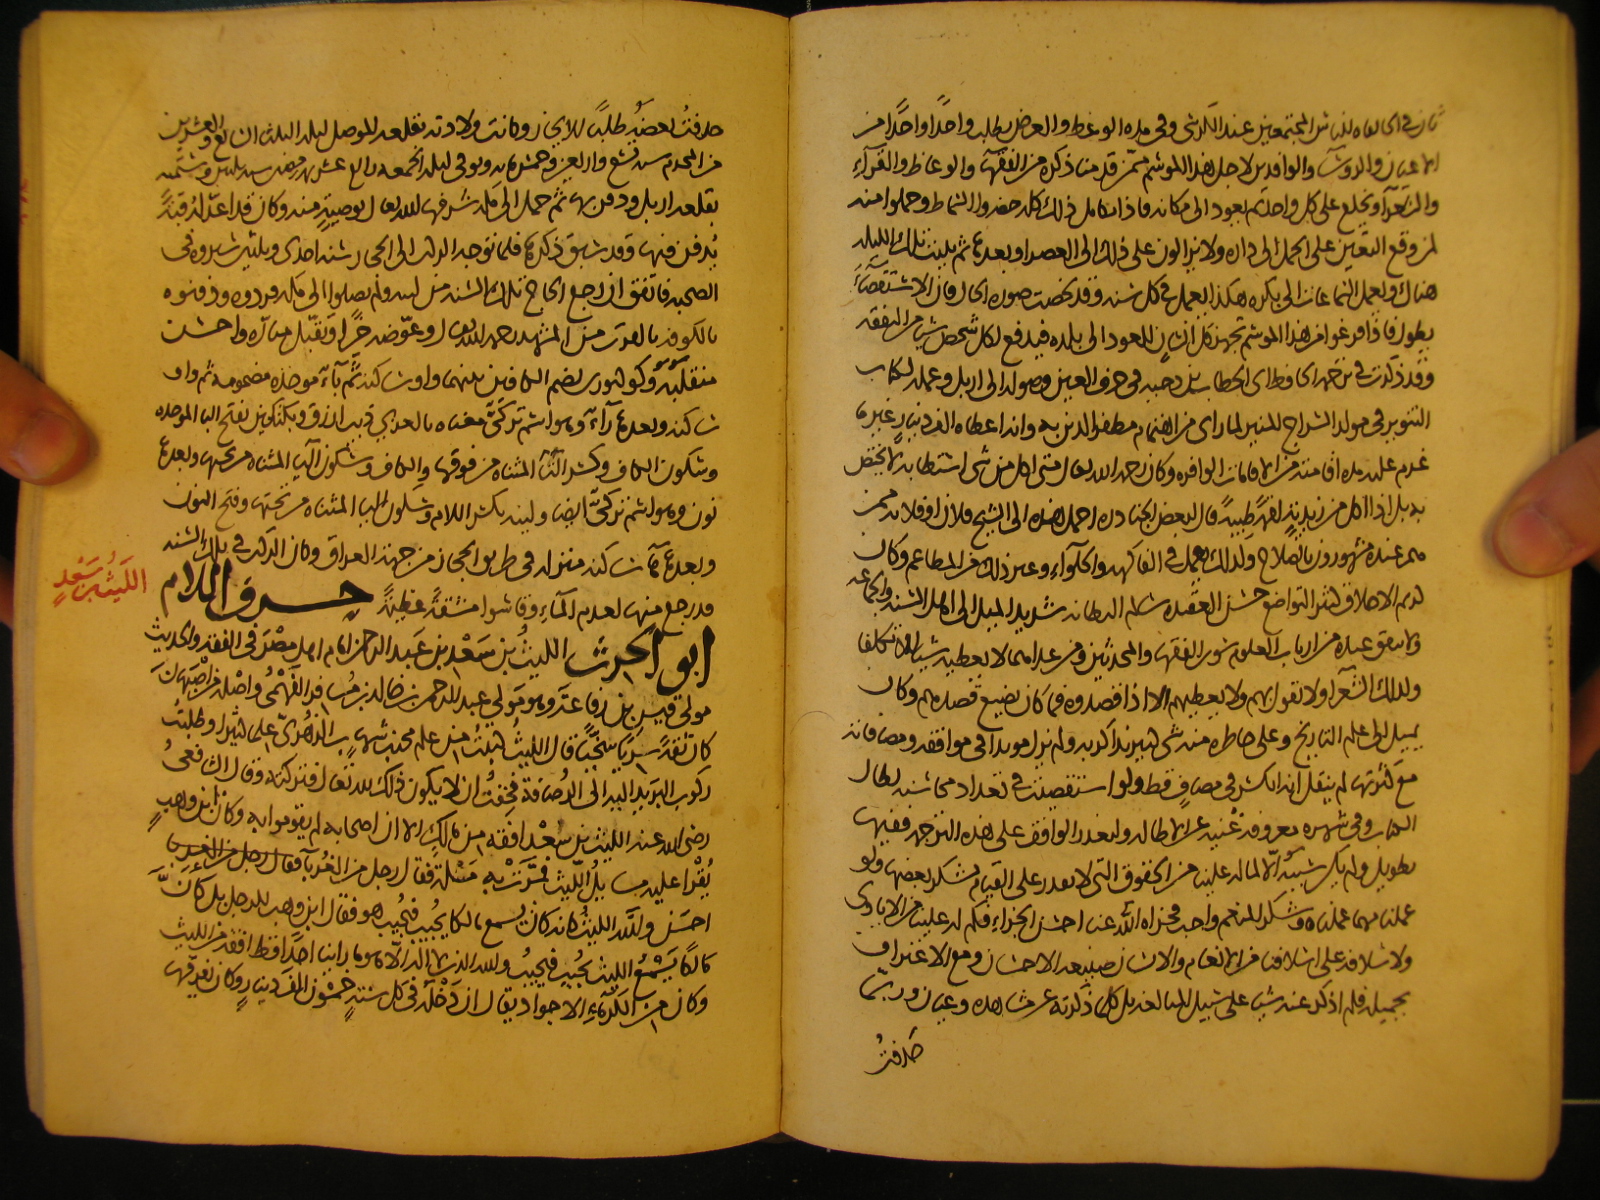 للناس المجتمعين عند الكرسي وفي مدة الوعظ والعرض يطلب واحدا واحدا من
الاعيان والروسآ والوافدين لاجل هذا الموسم ممن قدمنا ذكره من الفقهآ والوعاظ والقرآء
والشعرآ ويخلع على كل واحد ثم يعود الى مكانه فاذا تكامل ذلك كله حضروا السماط وحملوا منه
لمن وقع التعين على الحمل الى داره ولا يزالون على ذلك الى العصر او بعدها ثم يبيت تلك الليلة
هناك ويعمل السماعات الى بكره هكذا يعمل في كل سنه وقد لخصت صورة الحال فان الاستقصآء
يطول فاذا فرغوا من هذا الموسم تجهز كل انسان للعود الى بلده فيدفع لكل شخص شيا من النفقه
وقد ذكرت في ترجمة الحافظ ابي الخطاب بن دحيه في حرف العين وصوله الى اربل وعمله لكتاب
التنوير في مولد السراج المنير لما راى من اهتمام مظفر الدين به وانه اعطاه الف دينار غير ما
غرم عليه مدة اقامته من الاقامات الوافره وكان رحمه الله تعالى متى اكل من شي استطابه لا يختص
به بل اذا اكل من زبديه لقمه طيبة قال لبعض الجنادره احمل هذه الى الشيخ فلان او فلانه ممن
هم عنده مشهورون بالصلاح وكذلك يعمل في الفاكهه والحلوآء وغير ذلك من المطاعم وكان
كريم الاخلاق كثير التواضع حسن العقيده سالم البطانه شديد الميل الى اهل السنه والجماعه
لا ينفق عنده من ارباب العلوم سوى الفقهآ والمحدثين ومن عداهما لا يعطيه شيا الا تكلفا
وكذلك الشعرآ ولا يقول بهم ولا يعطيهم الا اذا قصدوه فما كان يضيع قصدهم وكان
يميل الى علم التاريخ وعلى خاطره منه شي كبير يذاكر به ولم يزل مويدا في مواقفه ومصافاته
مع كثرتها لم ينقل انه انكسر في مصاف قط ولو استقصيت في تعداد محاسنه لطال
الكتاب وفي شهرة معروفه غنية عن الاطاله وليعذر الواقف على هذه الترجمه ففيها
تطويل ولم يكن سببه الا ما له علينا من الحقوق التي لا نقدر على القيام بشكر بعضها ولو
عملنا مهما عملناه وشكر المنعم واجب فجزاه الله عنا احسن الجزاء فكم له علينا من الايادي
ولاسلافه على اسلافنا من الانعام والانسان صنيعة الاحسان ومع الاعتراف
بجميله فلم اذكر عنه شيا على سبيل المبالغة بل كل ما ذكرته عن مشاهده وعيان وربما
حذفتُ
حذفتُ بعضه طلبا للايجاز وكانت ولادته بقلعة الموصل ليلة الثلثا السابع والعشرين
من المحرم سنه تسع واربعين وخمسمايه وتوفي ليلة الجمعه رابع عشر رمضان سنه ثلثين وستمه
بقلعة اربل ودفن بها ثم حمل الى مكه شرفها الله تعالى بوصية منه وكان قد اعد له قبة
يُدفن فيها وقد سبق ذكرها فلما توجه الركب الى الحجاز سنة احدى وثلثين سيروه في
الصحبه فاتفق ان رجع الحاج تلك السنه من لينه ولم يصلوا الى مكه فردوه ودفنوه
بالكوفه بالقرب من المشهد رحمه الله تعالى وعوضه خيرا وتقبل مبارّه واحسن
منقلبه وكوكبوري بضم الكافين بينهما واو ساكنه ثم بآء موحده مضمومه ثم واو
ساكنه وبعدها رآء وهو اسم تركي معناه بالعربي ذيب ازرق وبكتكين بفتح البا الموحده
وسكون الكاف وكسر التآ المثناه من فوقها والكاف وسكون اليآ المثناه من تحتها وبعدها
نون وهو اسم تركي ايضا ولينه بكسر اللام وسكون اليا المثناه من تحتها وفتح النون
وبعدها هآ ساكنه منزله في طريق الحجاز من جهة العراق وكان الركب في تلك السنه
قد رجع منها لعدم المآء وقاسوا مشقة عظيمة حرف اللام
الليث بن سعد
ابو الحرث الليثُ بن سَعْد بن عَبد الرحمن امام اهل مِصْرَ في الفقه والحديث
مولى قيس بن رفاعة وهو مولى عبد الرحمن بن خالد بن مُسافر الفَهْمي واصله من اصبهان
كان ثقة سريّا سخيّا قال الليث كتبت من علم محمد بن شهاب الزهري علما كثيرا وطلبتُ
ركوب البريد اليه الى الرُصافة فخِفتُ ان لا يكون ذلك لله تعالى فتركته وقال الشافعيُ
رضى الله عنه الليث بن سعْد افقه من مالك الا ان اصحابه لم يقوموا به وكان ابن وهب
يُقرا عليه مسايل الليث فمرّت به مسْئلة فقال رجل من الغربآ
احسَن والله الليث كانه كان يسمع مالكا يُجيب فيجيب هو فقال ابن وهب للرجل بل كان
مالك يَسْمعُ الليث يجُيب فيجيبُ والله الذي لا اله الا هو ما راينا احدا قط افقه من الليث
وكان من الكرمآء الاجواد يقال ان دَخْله في كل سنةٍ خمسُون الف دينار وكان يفرقها